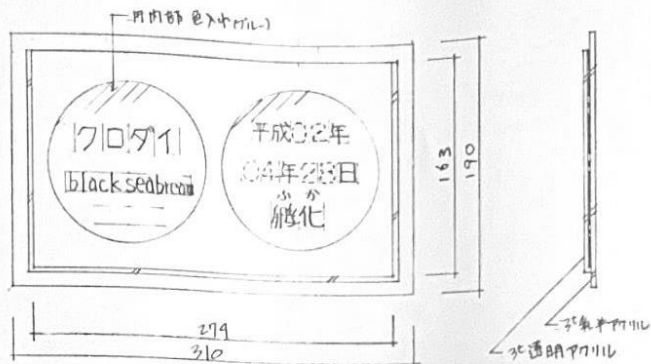 円内部 色入れ(ブルー)
クロダイ
black seabream
平成02年
04年28日
ふか
孵化
163
190
279
310
3t乳半アクリル
3t透明アクリル